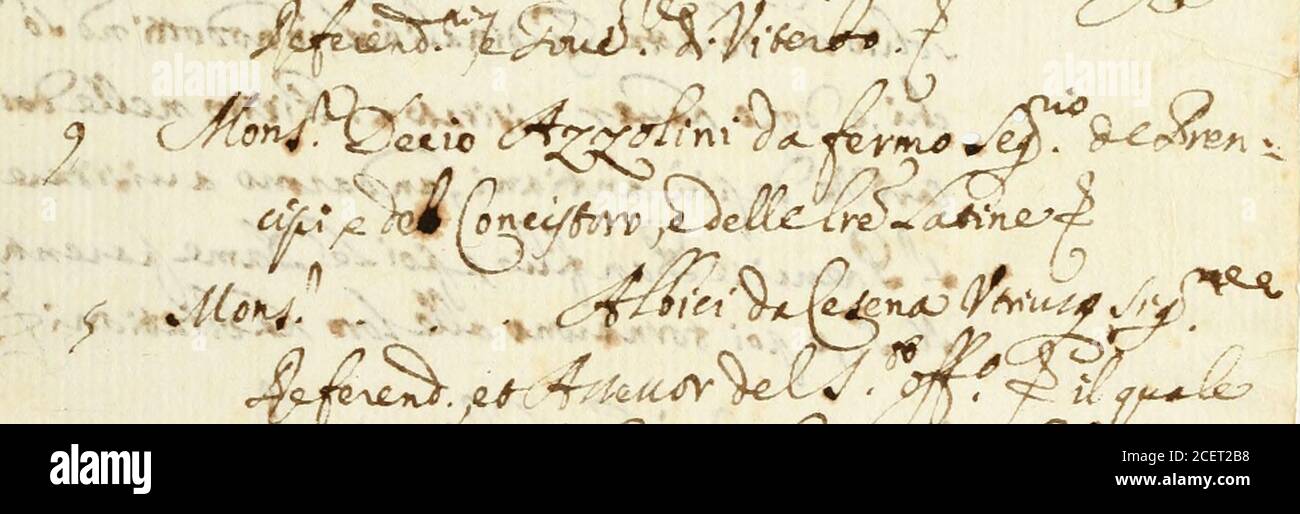 Referend.rio, e Gover.re di Viterbo.
9 Mons.r Decio Azzolini da fermo Seg.rio de Pren=
cipi, e del Concistoro, e delle lre Latine
5 Mons.r . . . . Albici da Cesena Utriusq Sig.
Referend., et Assessor del S.to Off.o il quale
alamy
alamy
alamy
Image ID: 2CET2B8
www.alamy.com